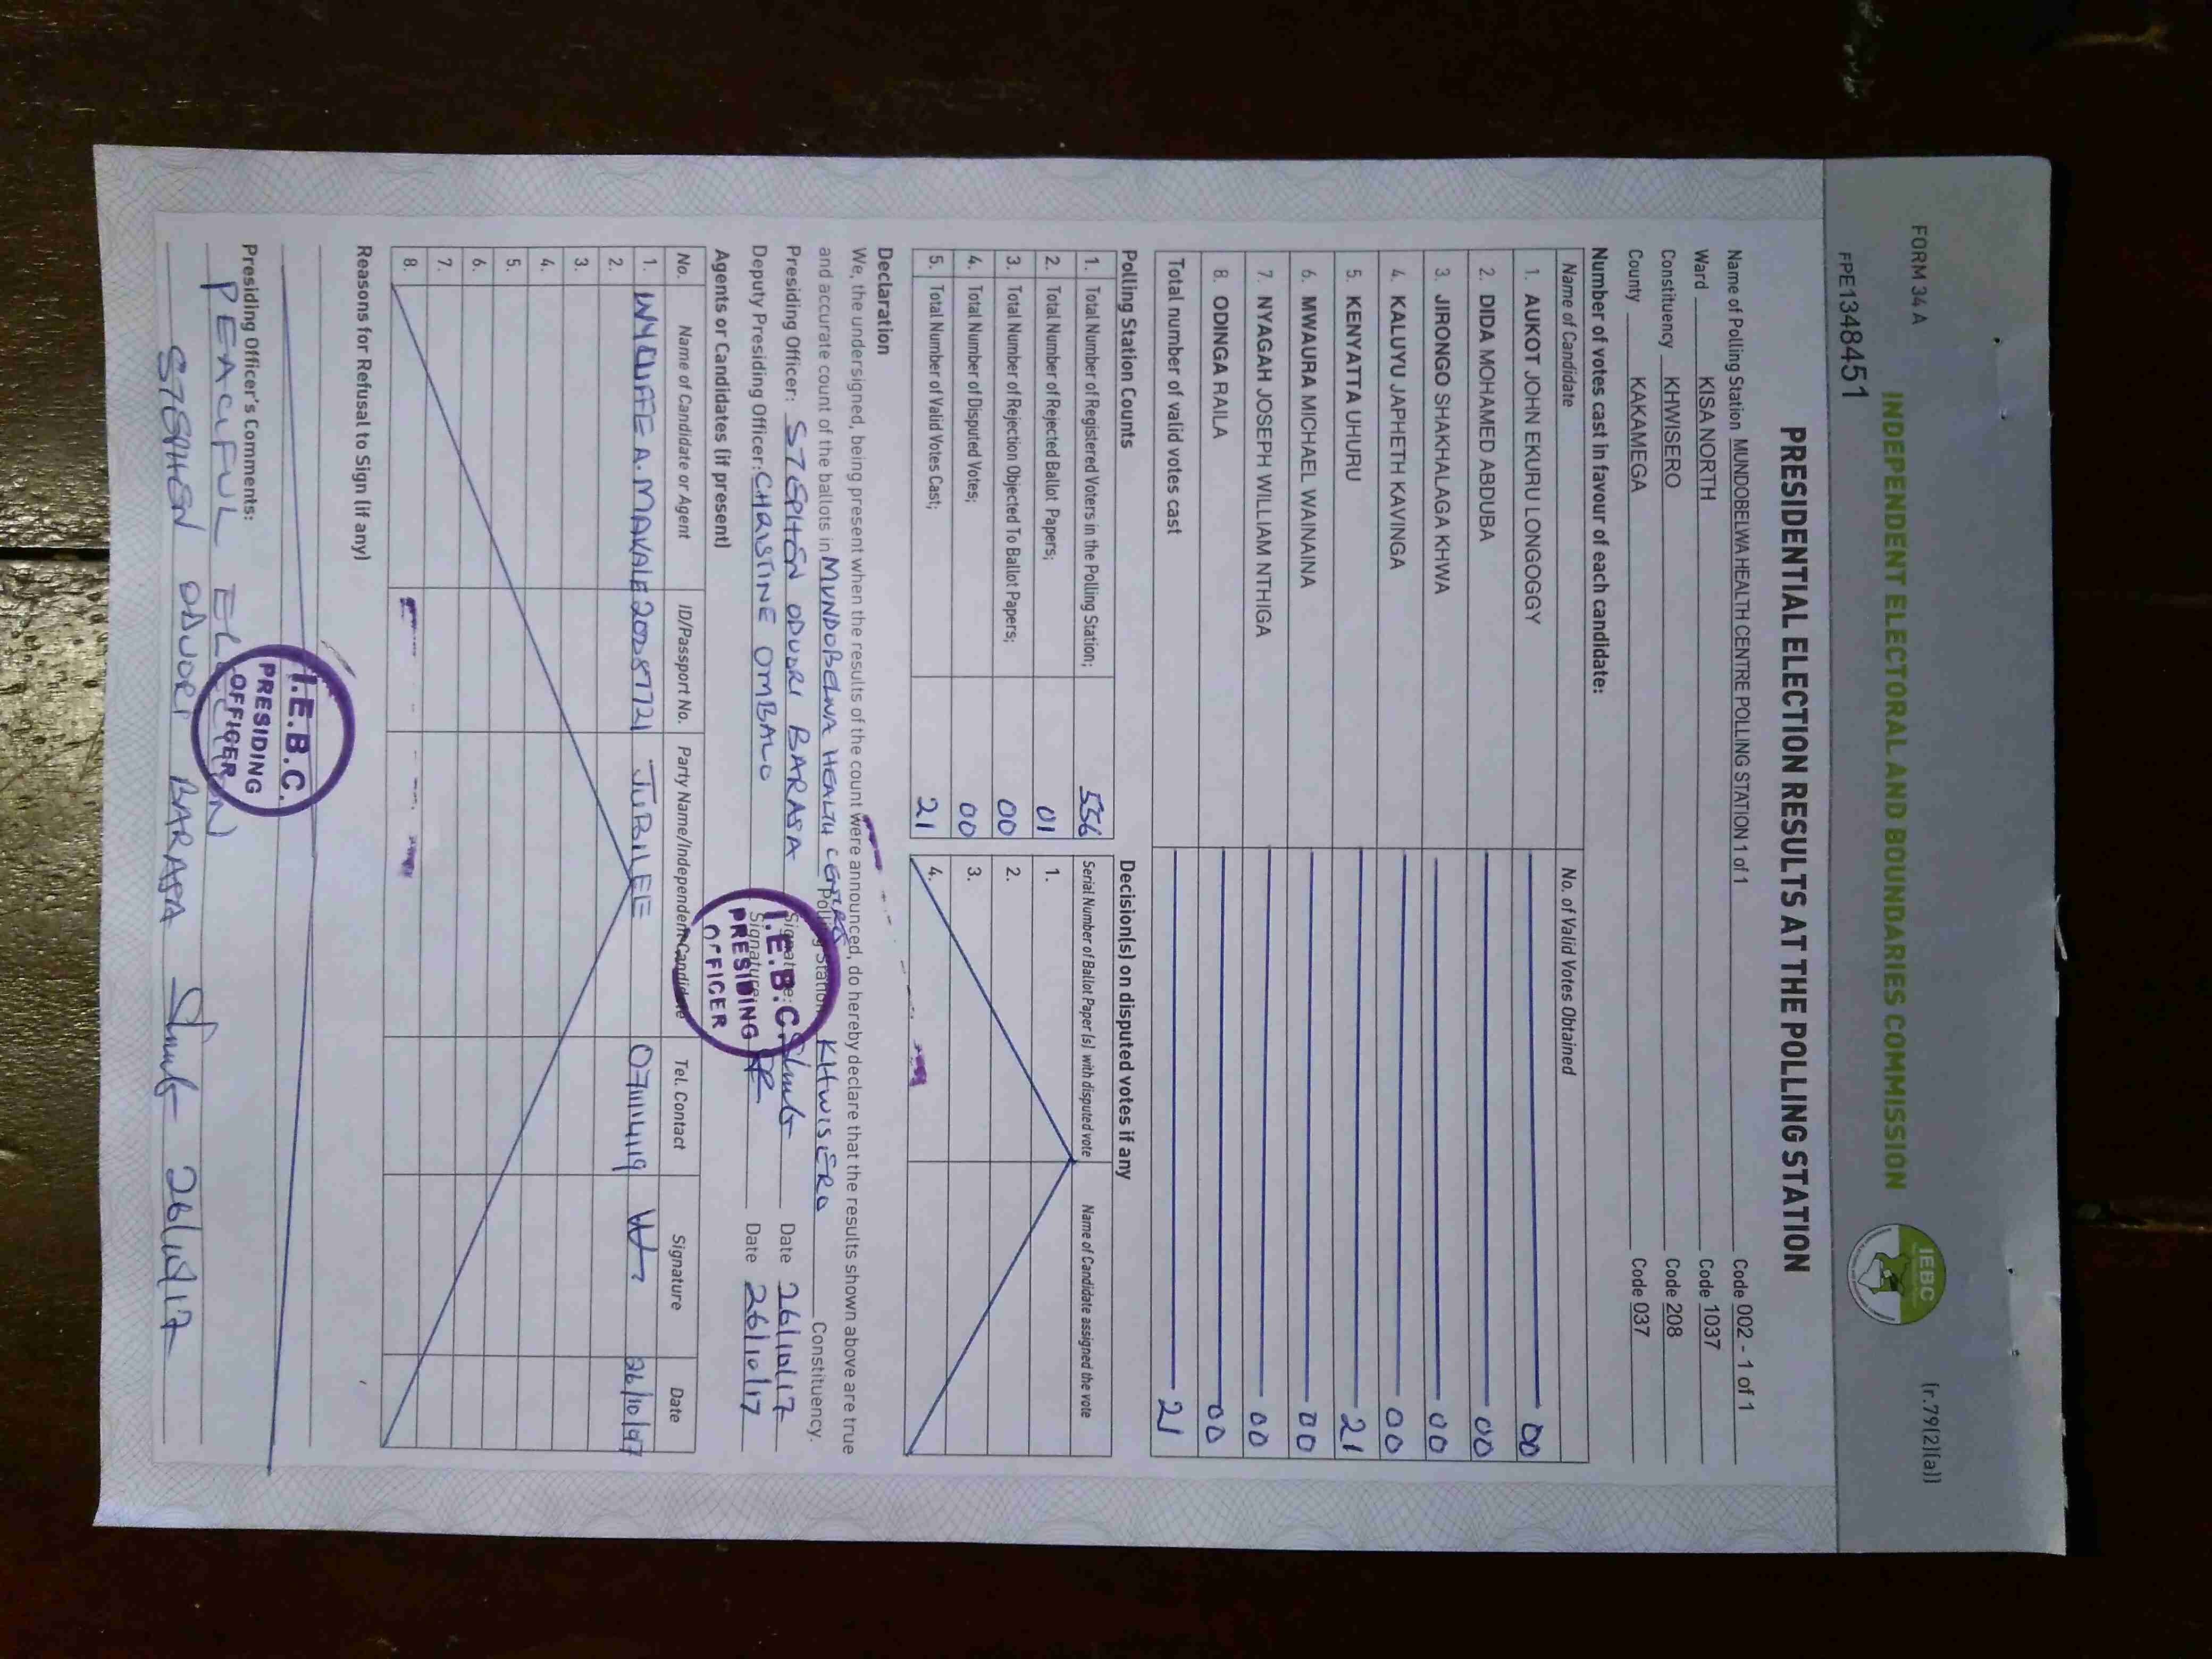 FORM 34 A
(r.79(2)(a))
INDEPENDENT ELECTORAL AND BOUNDARIES COMMISSION
IEBC
FPE1348451
PRESIDENTIAL ELECTION RESULTS AT THE POLLING STATION
Name of Polling Station MUNDOBELWA HEALTH CENTRE POLLING STATION 1 of 1 Code 002 - 1 of 1
Ward KISA NORTH Code 1037
Constituency KHWISERO Code 208
County KAKAMEGA Code 037
Number of votes cast in favour of each candidate:
Name of Candidate No. of Valid Votes Obtained
1. AUKOT JOHN EKURU LONGOGGY 00
2. DIDA MOHAMED ABDUBA 00
3. JIRONGO SHAKHALAGA KHWA 00
4. KALUYU JAPHETH KAVINGA 00
5. KENYATTA UHURU 21
6. MWAURA MICHAEL WAINAINA 00
7. NYAGAH JOSEPH WILLIAM NTHIGA 00
8. ODINGA RAILA 00
Total number of valid votes cast 21
Polling Station Counts
1. Total Number of Registered Voters in the Polling Station; 556
2. Total Number of Rejected Ballot Papers; 01
3. Total Number of Rejection Objected To Ballot Papers; 00
4. Total Number of Disputed Votes; 00
5. Total Number of Valid Votes Cast; 21
Decision(s) on disputed votes if any
Serial Number of Ballot Paper (s) with disputed vote Name of Candidate assigned the vote
1.
2.
3.
4.
Declaration
We, the undersigned, being present when the results of the count were announced, do hereby declare that the results shown above are true
and accurate count of the ballots in MUNDOBELWA HEALTH CENTRE Polling Station KHWISERO Constituency.
Presiding Officer: STEPHEN ODUORI BARASA Signature: Date 26/10/17
Deputy Presiding Officer: CHRISTINE OMBALO Signature: Date 26/10/17
I.E.B.C.
PRESIDING
OFFICER
Agents or Candidates (if present)
No. Name of Candidate or Agent ID/Passport No. Party Name/Independent Candidate Tel. Contact Signature Date
1. A. JUBILEE
2.
3.
4.
5.
6.
7.
8.
Reasons for Refusal to Sign (if any)
I.E.B.C.
PRESIDING
OFFICER
Presiding Officer's Comments:
PEACEFUL ELECTION
STEPHEN ODUORI BARASA 26/10/17